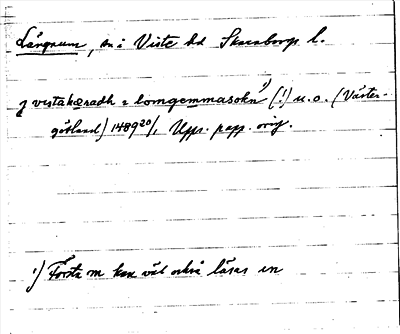 Längnum, sn i Viste hd Skaraborgs l.
j vistahæradh i lomgemmasokn 1) (!) u.o. (Väster-
götland) 1489 20/1 Upps. papp. orig.
1) Första m kan väl också läsas un